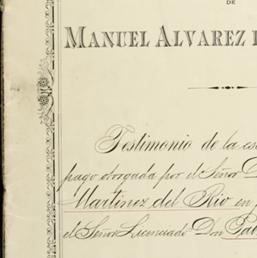 DE
MANUEL ALVAREZ
Testimonio de la
pago otorgada por el Señor D
Martinez del Rio en
el Señor Licenciado Don Gab